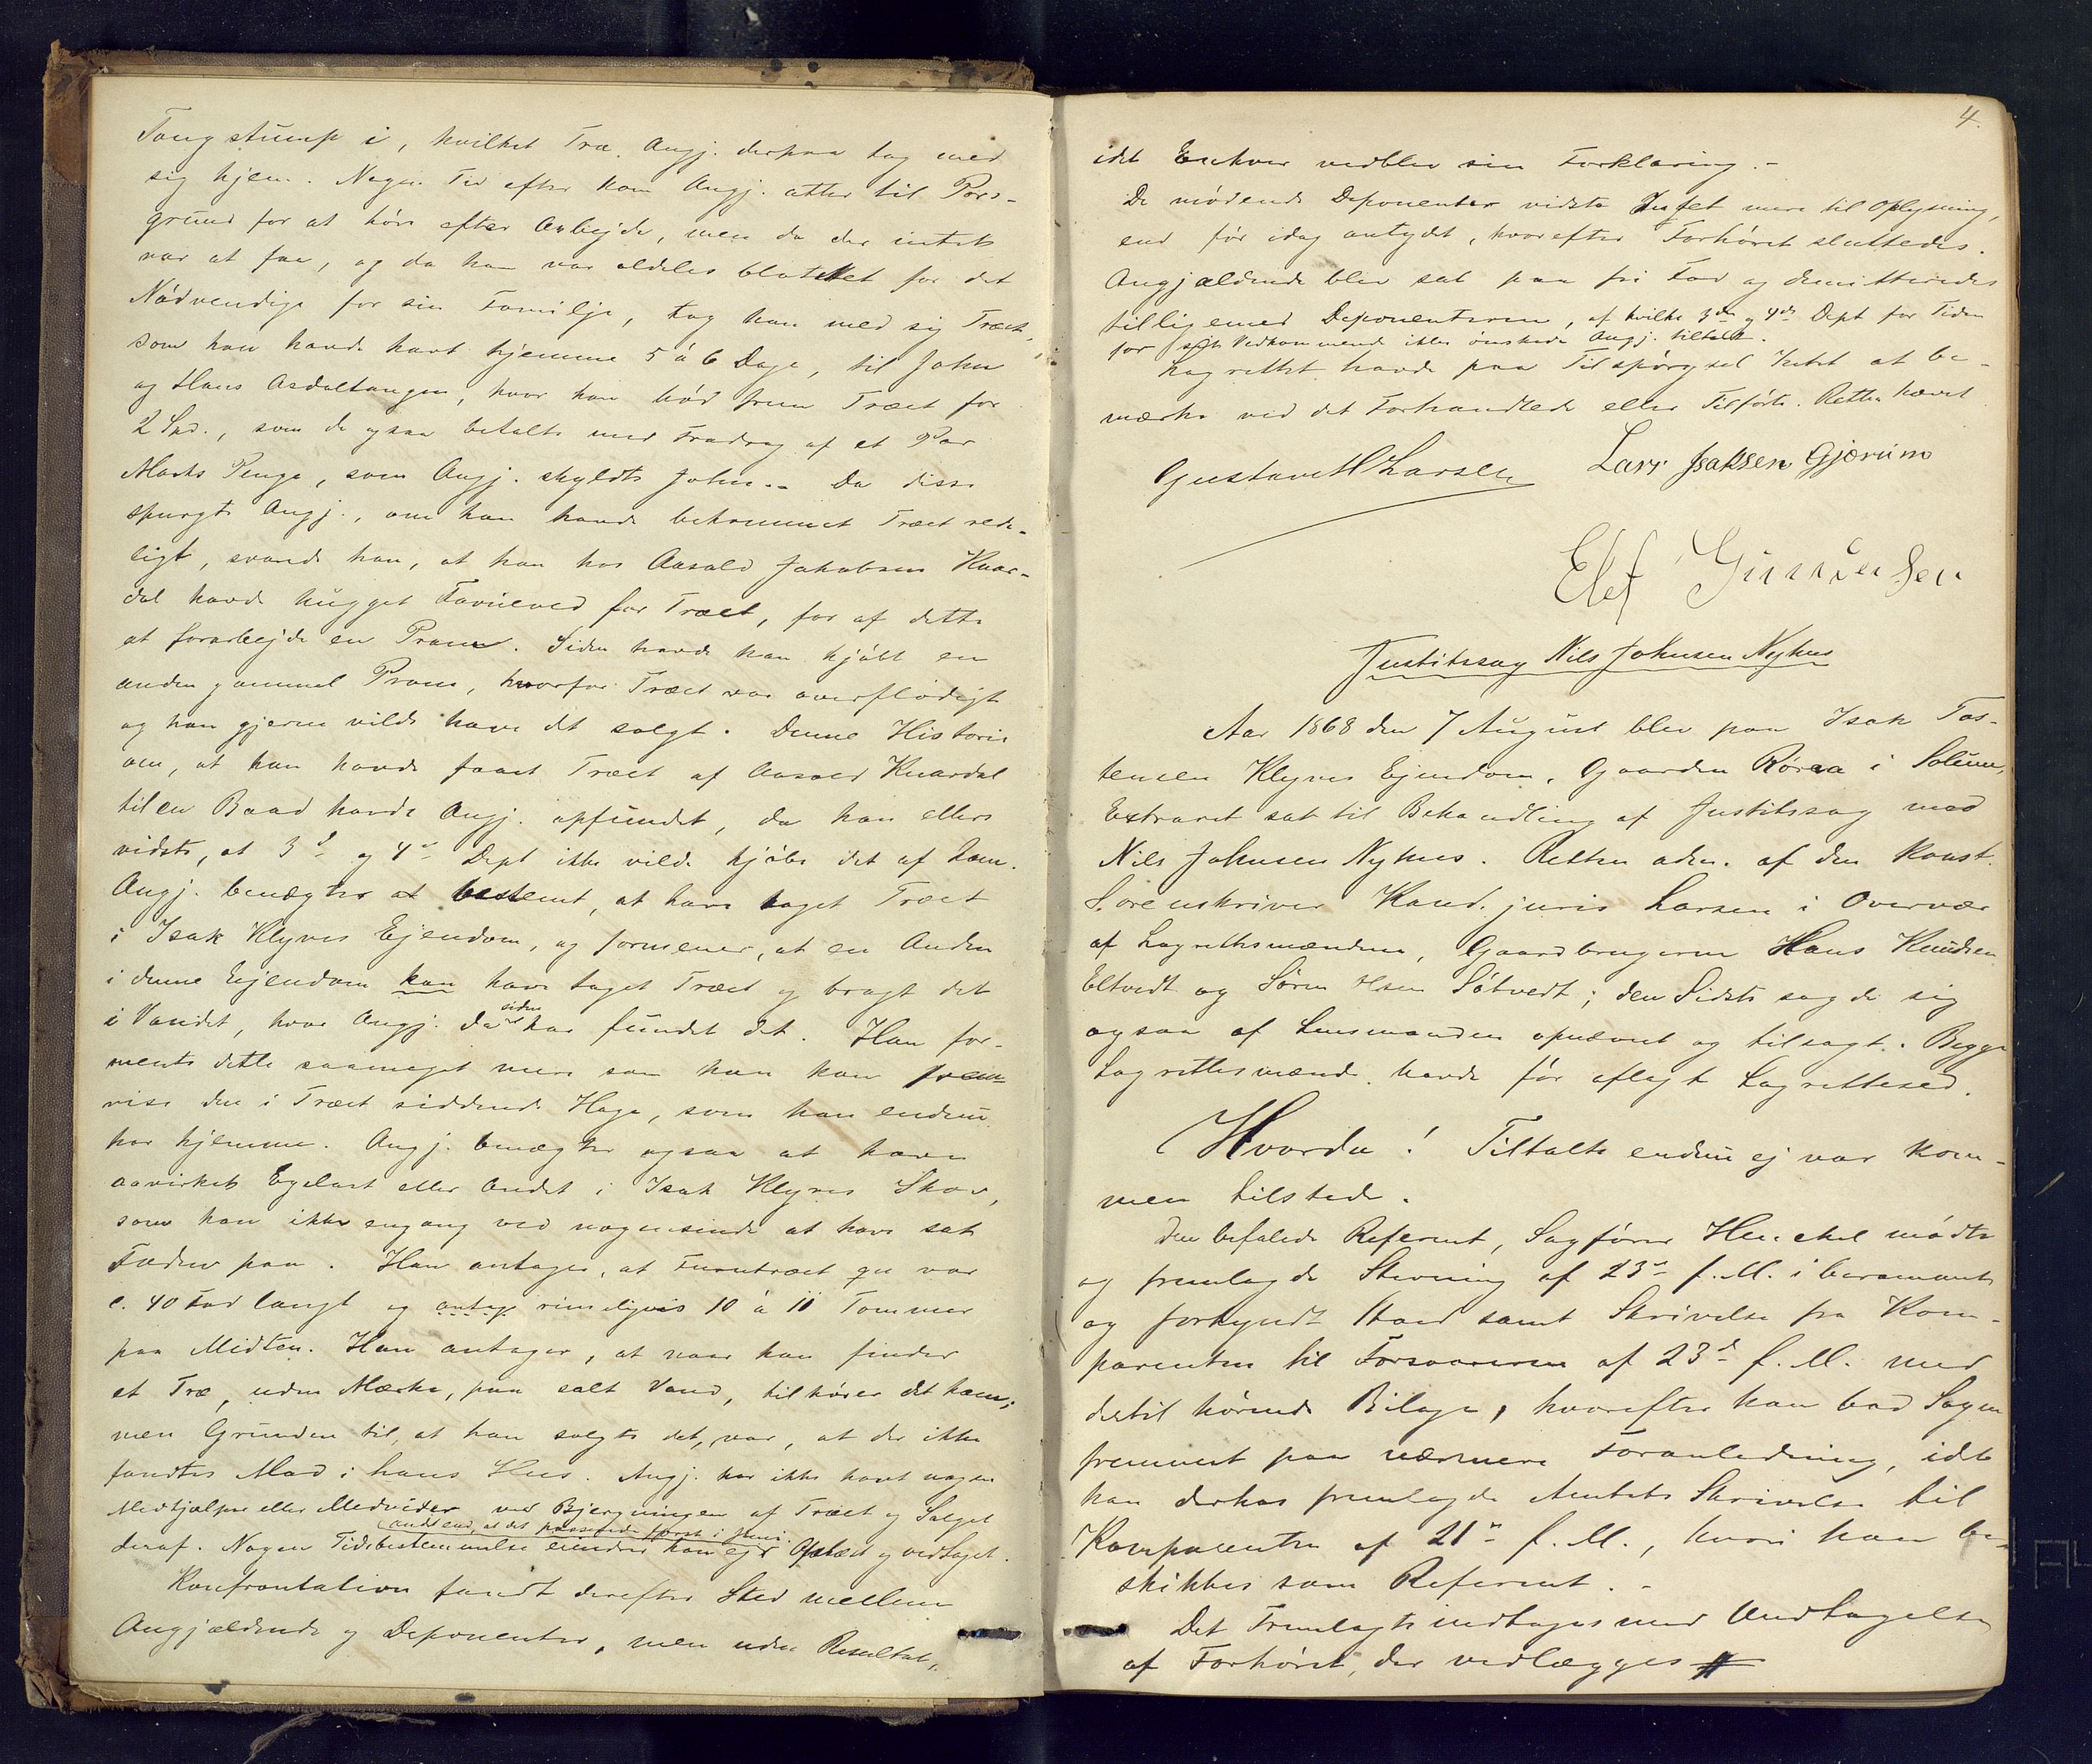 Tougstump i, hvilket Træ Angj. derpaa tog med
sig hjem. Nogen Tid efter kom Angj. atter til Pors-
grund for at høre efter Arbejde, men da der intet
var at faa, og da han var aldeles blottet for det
Nødvendige for sin Familje, tog han med sig Træet,
som han havde havt hjemme 5 à 6 Dage, til John
og Hans Asdaltangen, hvor han bød frem Træet for
2 Spd., som de ogsaa betalte med Fradrag af et Par
Marks Penge, som Angj. skyldte John. - Da disse
spurgte Angj., om han havde bekommet Træet rede-
ligt, svarede han, at han hos Aasold Jakobsen Knar-
dal havde hugget Favneved for Træet, for af dette
at forarbejde en Pram. Siden havde han kjøbt en
anden gammel Pram, hvorfor Træet var overflødigt
og han gjerne vilde have det solgt. Denne Historie
om, at han havde faaet Træet af Aasold Knardal
til en Baad havde Angj. opfundet, da han ellers
vidste, at 3d og 4d Dept ikke vilde kjøbe det af ham.
Angj. benægter at bestemt, at have taget Træet
i Isak Klyves Ejendom, og formener, at en Anden
i denne Ejendom kan have taget Træet og bragt det
i Vandet, hvor Angj. da siden har fundet det. Han for-
mente dette saameget mere som han kan frem-
vise den i Træet siddende Hage, som han endnu
har hjemme. Angj. benægter ogsaa at have
aavirket Egelast eller Andet i Isak Klyves Skov,
som han ikke engang ved nogensinde at have sat
Foden paa. Han antager, at Furutræet var
c. 40 Fod langt og antag rimeligvis 10 à 11 Tommer
paa Midten. Han antager, at naar han finder
et Træ, uden Mærke, paa salt Vand, tilhører det ham;
men Grunden til, at han solgte det, var, at der ikke
fandtes Mad i hans Hus. Angj. har ikke havt nogen
Medhjælper eller Medvider ved Bjergningen af Træet og Salget
andet end, at det passerede først i Juni
deraf. Nogen Tidsbestemmelse erindrer han ej. Oplæst og vedtaget.
Konfrontation fandt derefter Sted mellem
Angjældende og Deponenter, men uden Resultat,
4.
idet Enhver vedblev sin Forklaring. -
De mødende Deponenter vidste Intet mere til Oplysning,
end før idag antydet, hvorefter Forhøret sluttedes.
Angjældende blev sat paa fri Fod og demitteredes
tilligemed Deponenterne, af hvilke 3de og 4de Dept for Tiden
for sit Vedkommende ikke ønskede Angj. tiltalt.
Lagrettet havde paa Tilspørgsel Intet at be-
mærke ved det Forhandlede eller Tilførte. Retten hævet
Gustav Larsen Lars Isaksen Gjærum
Elef Gundersen
Justitssag Nils Johnsen Nyhus
Aar 1868 den 7 August blev paa Isak Tos-
tensen Klyves Ejendom, Gaarden Røraa i Solum,
Extraret sat til Behandling af Justitssag mod
Nils Johnsen Nyhus. Retten adm. af den konst.
Sorenskriver Kand. juris Larsen i Overvær
af Lagrettesmændene, Gaardbrugerne Hans Knudsen
Eltvedt og Søren Søtvedt; den Sidste sagde sig
ogsaa af Lensmanden opnævnt og tilsagt. Begge
Lagrettesmænd havde før aflagt Lagrettesed.
Hvorda! Tiltalte endnu ej var kom-
men tilstede.
Den befalede Referent, Sagfører Henckel mødte
og fremlagde Stevning af 23de f. M. i beramment
og forkyndt Stand samt Skrivelse fra Kom-
parenten til Forsvareren af 23de f. M. med
dertil hørende Bilage, hvorefter han bad Sagen
fremmet paa nærmere Foranledning, idet
han derhos fremlagde Amtets Skrivelse til
Komparenten af 21de f. M., hvori han be-
skikkes som Referent. -
Det Fremlagte indtages med Undtagelse
af Forhøret, der vedlægges